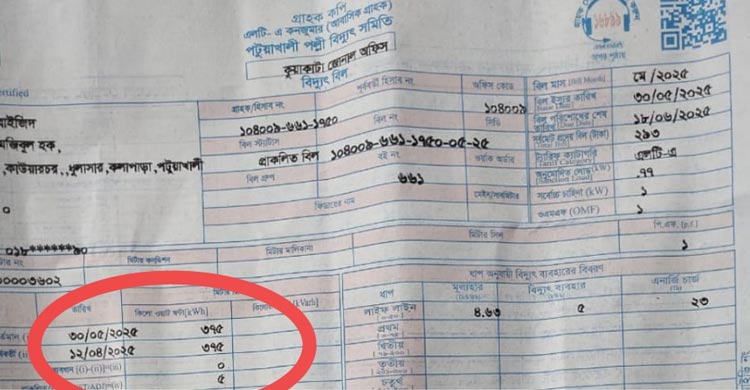 গ্রাহক কপি
এলটি- এ কনজুমার (আবাসিক গ্রাহক)
পটুয়াখালী পল্লী বিদ্যুৎ সমিতি
কুয়াকাটা জোনাল অফিস
বিদ্যুৎ বিল
১৬৮৯৯
ertified
গ্রাহক/হিসাব নং
পূর্ববর্তী হিসাব নং
অফিস কোড
বিল মাস (Bill Month)
মে /২০২৫
১০৪০০৯-৬৬১-১৭৫০
১০৪০০৯
বিল ইস্যুর তারিখ
৩০/০৫/২০২৫
বিল স্ট্যাটাস
বিল নং
সিডি
বিল পরিশোধের শেষ তারিখ
১৮/০৬/২০২৫
জিবুল হক,
প্রাকলিত বিল
১০৪০০৯-৬৬১-১৭৫০-০৫-২৫
সর্বমোট বিল (টাকা)
২৯৩
কাউয়ারচর,,ধুলাসার,কলাপাড়া,পটুয়াখালী
বিল গ্রুপ
বই নং
ট্যারিফ ক্যাটাগরি
এলটি-এ
৬৬১
অনুমোদিত লোড (kW)
ফিডারের নাম
সর্বোচ্চ চাহিদা (kW)
১
০
ওএমএফ (OMF)
১
০১৮******৯০
মিটার কন্ডিশন
মিটার মালিকানা
মিটার সিল
পি.এফ. (p.f.)
১
০০০০৩৬০২
ধাপ অনুযায়ী বিদ্যুৎ ব্যবহারের বিবরণ
তারিখ
কিলো ওয়াট ঘন্টা[kWh]
[kVarh]
ধাপ
মূল্যহার
বিদ্যুৎ ব্যবহার
এনার্জি চার্জ
৩০/০৫/২০২৫
৩৭৫
লাইফ লাইন
৪.৬৩
৫
২৩
১২/০৪/২০২৫
৩৭৫
প্রথম
[(i)-(ii)]
০
দ্বিতীয়
৫
তৃতীয়
চতুর্থ